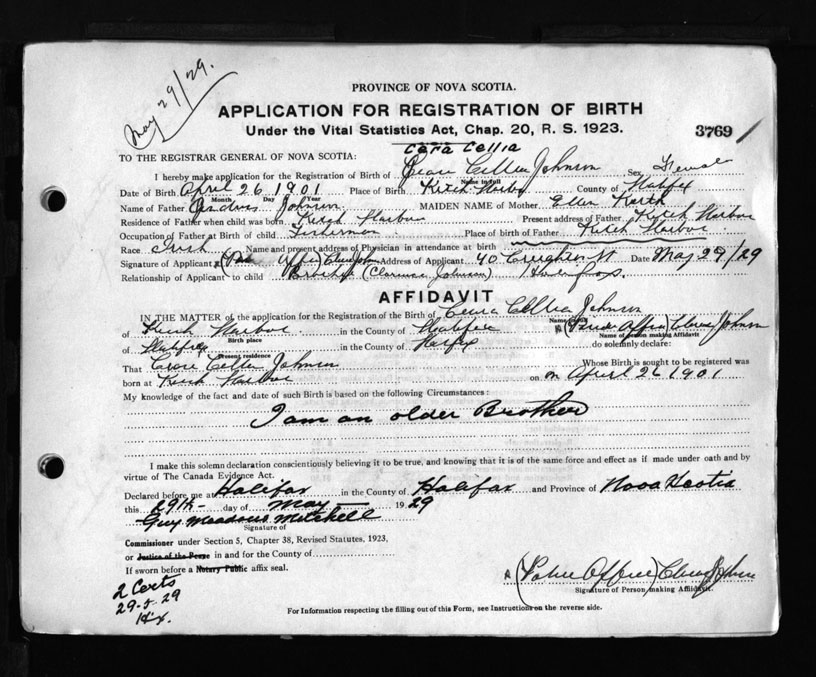 May 29/29.
PROVINCE OF NOVA SCOTIA.
APPLICATION FOR REGISTRATION OF BIRTH
Under the Vital Statistics Act, Chap. 20, R. S. 1923.
3769
Cera Cellia
TO THE REGISTRAR GENERAL OF NOVA SCOTIA:
I hereby make application for the Registration of Birth of Cellia Johnson Sex Female
Name in full
Date of Birth April 26 1901 Place of Birth Ketch Harbor County of Halifax
Month Day Year
Name of Father Johnson MAIDEN NAME of Mother Ellen
Residence of Father when child was born Ketch Harbor Present address of Father Ketch Harbor
Occupation of Father at Birth of child Fisherman Place of birth of Father Ketch Harbor.
Race Irish Name and present address of Physician in attendance at birth
Signature of Applicant Johnson Address of Applicant 40 Creighton St Date May 29/29
Relationship of Applicant to child Brother (Clarence Johnson)
AFFIDAVIT
IN THE MATTER of the application for the Registration of Birth of Cellia Johnson
Name in full
of Ketch Harbor in the County of Halifax Johnson
Birth place Name of Person making Affidavit
of Halifax in the County of Halifax do solemnly declare:
Present residence
That Cellia Johnson Whose Birth is sought to be registered was
born at Ketch Harbor on April 26 1901
My knowledge of the fact and date of such Birth is based on the following Circumstances:
I am an older Brother
I make this solemn declaration conscientiously believing it to be true, and knowing that it is of the same force and effect as if made under oath and by
virtue of The Canada Evidence Act.
Declared before me at Halifax in the County of Halifax and Province of Nova Scotia
this 29th day of May 1929
Guy Meadows Mitchell
Signature of
Commissioner under Section 5, Chapter 38, Revised Statutes, 1923,
or Justice of the Peace in and for the County of
If sworn before a Notary Public affix seal.
(Police Office) Johnson
Signature of Person making Affidavit.
2 Certs
29-5-29
Hx.
For Information respecting the filling out of this Form, see Instruction on the reverse side.